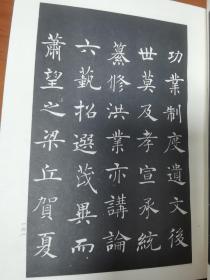 功業制度遺文後
世莫及孝宣承統
纂修洪業亦講論
六蓺招選茂異而
蕭望之梁丘賀夏